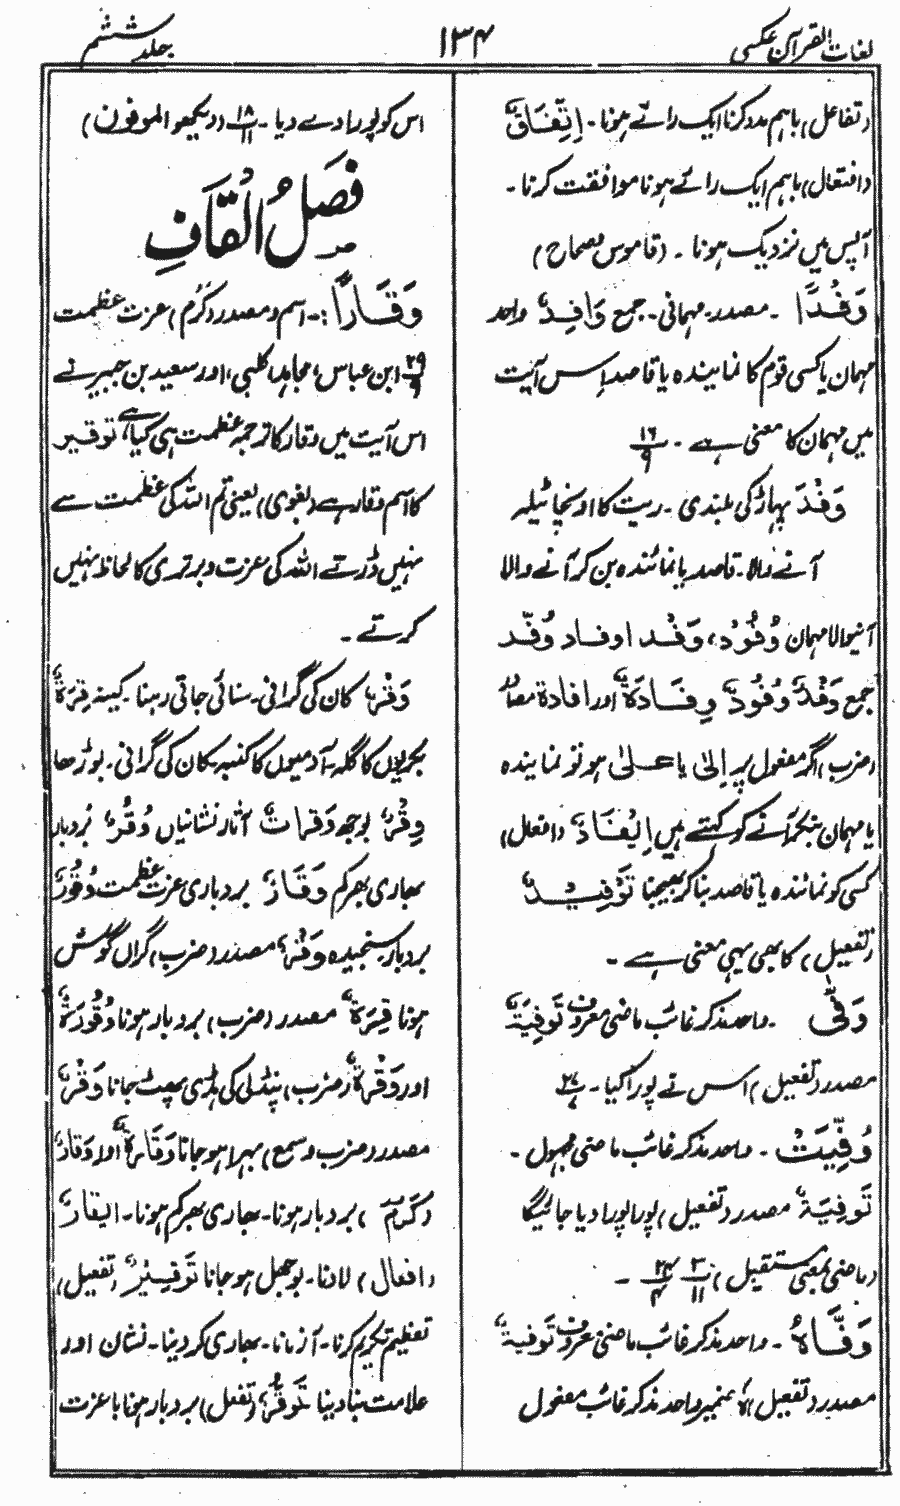 لغات القرآن عکسی
۱۳۴
جلد ششم
(تفاعل) باہم مدد کرنا ایک رائے ہونا۔ اِتِّفَاقٌ
(افتعال) باہم ایک رائے ہونا موافقت کرنا۔
آپس میں نزدیک ہونا۔ (قاموس صحاح)
وَفْدًا ۔ مصدر۔ مہمانی۔ جمع وَافِدٌ واحد
مہمان یا کسی قوم کا نمایندہ یا قاصد اِس آیت
میں مہمان کا معنی ہے ۔ ۱۶/۹
وَفْدَ پہاڑ کی بلندی ۔ ریت کا اونچا ٹیلہ
آنے والا۔ قاصد یا نمائندہ بن کر آنے والا
آنیوالا مہمان وُفُودٌ، وَفْد اوفاد وُفَّد
جمع وَفْدَ وُفُودٌ وِفَادَةٌ اور افادة مصادر
(ضرب) اگر مفعول پر اِلیٰ یا عَلیٰ ہو تو نمایندہ
یا مہمان بنکر آنے کو کہتے ہیں اِیْفَادٌ (افعال)
کسی کو نمائندہ یا قاصد بنا کر بھیجنا تَوْفِیْدٌ
(تفعیل) کا بھی یہی معنی ہے ۔
وَفّٰی ۔ واحد مذکر غائب ماضی معروف تَوفِیَةٌ
مصدر (تفعیل) اس نے پورا کیا ۔ ۲۷/۷
وُفِّیَتْ ۔ واحد مذکر غائب ماضی مجہول ۔
تَوفِیَةٌ مصدر (تفعیل) پورا پورا دیا جائیگا
(ماضی بمعنی مستقبل) ۳/۱۱ ۲۴/۴ ۔
وَفّٰاهُ ۔ واحد مذکر غائب ماضی معروف تَوفیةٌ
مصدر (تفعیل) ہٗ ضمیر واحد مذکر غائب مفعول
اس کو پورا دے دیا ۔ ۱۸/۱۱ (دیکھو الموفون)
فصَلُ القَافِ
وَقَارًا :۔ اسم و مصدر (کَرُم) عزت عظمت
۲۹/۹ ابن عباس، مجاہد، کلبی، اور سعید بن جبیر نے
اس آیت میں وقار کا ترجمہ عظمت ہی کیا ہے، توقیر
کا اسم وقار ہے (بغوی) یعنی تم اللہ کی عظمت سے
نہیں ڈرتے اللہ کی عزت و برتری کا لحاظ نہیں
کرتے ۔
وَقْرٌ کان کی گرانی۔ سنائی جاتی رہنا۔ کینہ قِرَةٌ
بکریوں کا گلہ۔ آدمیوں کا کنبہ۔ کان کی گرانی۔ بوڑھا
وِقْرٌ بوجھ وَقَرَاتٌ آثار نشانیاں وُقُرٌ بُردبار
بھاری بھرکم وَقَارٌ بردباری عزت عظمت وُقُورٌ
بردبار سنجیدہ وَقْرٌ مصدر (ضرب) گراں گوش
ہونا قِرَةٌ مصدر (ضرب) بردبار ہونا وُقُورَةٌ
اور وَقْرَةٌ (ضرب) پنڈلی کی ہڈی پھٹ جانا وَقْرٌ
مصدر (ضرب و سمع) بہرا ہو جانا وَقَارَةٌ اور وَقَارٌ
(کَرُم) بردبار ہونا۔ بھاری بھرکم ہونا۔ ایقارٌ
(افعال) لادنا۔ بوجھل ہو جانا تَوقِیْرٌ (تفعیل)
تعظیم تکریم کرنا۔ آزمانا۔ بھاری کر دینا۔ نشان اور
علامت بنا دینا تَوَقُّرٌ (تفعل) بردبار ہونا با عزت